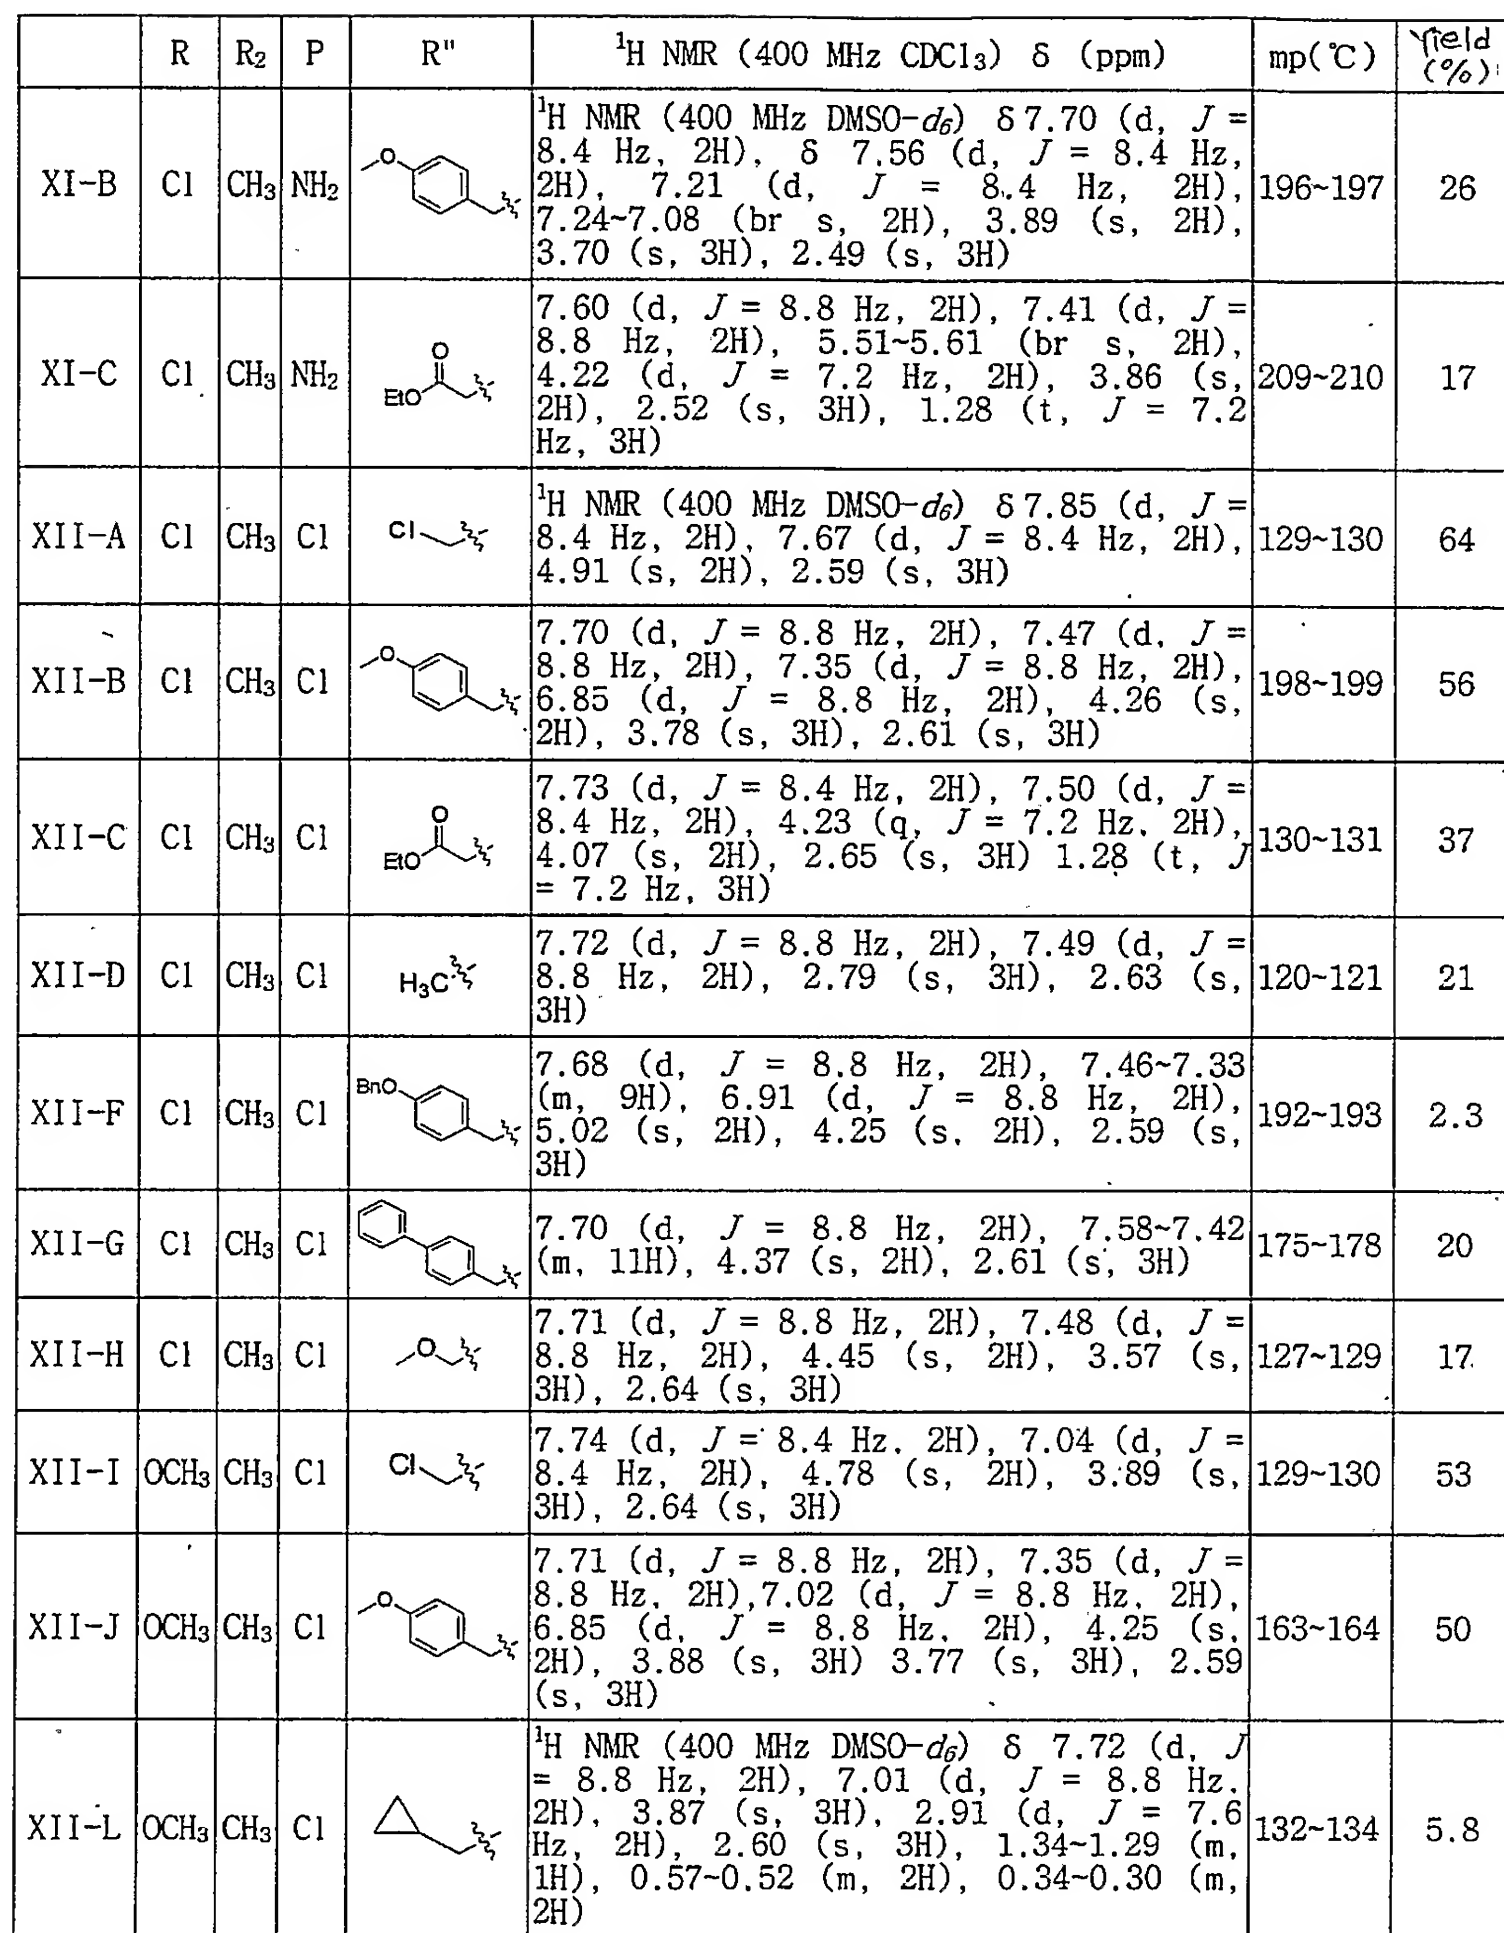 R R₂ P R" ¹H NMR (400 MHz CDCl₃) δ (ppm) mp(℃) Yield (%)
XI-B Cl CH₃ NH₂ O
¹H NMR (400 MHz DMSO-d₆) δ 7.70 (d, J =
8.4 Hz, 2H), δ 7.56 (d, J = 8.4 Hz,
2H), 7.21 (d, J = 8.4 Hz, 2H),
7.24~7.08 (br s, 2H), 3.89 (s, 2H),
3.70 (s, 3H), 2.49 (s, 3H)
196~197 26
XI-C Cl CH₃ NH₂ O EtO
7.60 (d, J = 8.8 Hz, 2H), 7.41 (d, J =
8.8 Hz, 2H), 5.51~5.61 (br s, 2H),
4.22 (d, J = 7.2 Hz, 2H), 3.86 (s,
2H), 2.52 (s, 3H), 1.28 (t, J = 7.2
Hz, 3H)
209~210 17
XII-A Cl CH₃ Cl Cl
¹H NMR (400 MHz DMSO-d₆) δ 7.85 (d, J =
8.4 Hz, 2H), 7.67 (d, J = 8.4 Hz, 2H),
4.91 (s, 2H), 2.59 (s, 3H)
129~130 64
XII-B Cl CH₃ Cl O
7.70 (d, J = 8.8 Hz, 2H), 7.47 (d, J =
8.8 Hz, 2H), 7.35 (d, J = 8.8 Hz, 2H),
6.85 (d, J = 8.8 Hz, 2H), 4.26 (s,
2H), 3.78 (s, 3H), 2.61 (s, 3H)
198~199 56
XII-C Cl CH₃ Cl O EtO
7.73 (d, J = 8.4 Hz, 2H), 7.50 (d, J =
8.4 Hz, 2H), 4.23 (q, J = 7.2 Hz, 2H),
4.07 (s, 2H), 2.65 (s, 3H) 1.28 (t, J
= 7.2 Hz, 3H)
130~131 37
XII-D Cl CH₃ Cl H₃C
7.72 (d, J = 8.8 Hz, 2H), 7.49 (d, J =
8.8 Hz, 2H), 2.79 (s, 3H), 2.63 (s,
3H)
120~121 21
XII-F Cl CH₃ Cl BnO
7.68 (d, J = 8.8 Hz, 2H), 7.46~7.33
(m, 9H), 6.91 (d, J = 8.8 Hz, 2H),
5.02 (s, 2H), 4.25 (s, 2H), 2.59 (s,
3H)
192~193 2.3
XII-G Cl CH₃ Cl
7.70 (d, J = 8.8 Hz, 2H), 7.58~7.42
(m, 11H), 4.37 (s, 2H), 2.61 (s, 3H)
175~178 20
XII-H Cl CH₃ Cl O
7.71 (d, J = 8.8 Hz, 2H), 7.48 (d, J =
8.8 Hz, 2H), 4.45 (s, 2H), 3.57 (s,
3H), 2.64 (s, 3H)
127~129 17
XII-I OCH₃ CH₃ Cl Cl
7.74 (d, J = 8.4 Hz, 2H), 7.04 (d, J =
8.4 Hz, 2H), 4.78 (s, 2H), 3.89 (s,
3H), 2.64 (s, 3H)
129~130 53
XII-J OCH₃ CH₃ Cl O
7.71 (d, J = 8.8 Hz, 2H), 7.35 (d, J =
8.8 Hz, 2H),7.02 (d, J = 8.8 Hz, 2H),
6.85 (d, J = 8.8 Hz, 2H), 4.25 (s,
2H), 3.88 (s, 3H) 3.77 (s, 3H), 2.59
(s, 3H)
163~164 50
XII-L OCH₃ CH₃ Cl
¹H NMR (400 MHz DMSO-d₆) δ 7.72 (d, J
= 8.8 Hz, 2H), 7.01 (d, J = 8.8 Hz,
2H), 3.87 (s, 3H), 2.91 (d, J = 7.6
Hz, 2H), 2.60 (s, 3H), 1.34~1.29 (m,
1H), 0.57~0.52 (m, 2H), 0.34~0.30 (m,
2H)
132~134 5.8